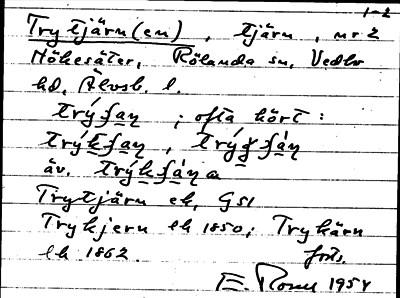 1-2
Trytjärn(en), tjärn, nr 2
Hökesäter, Rölanda sn, Vedbo
hd, Älvsb. l.
trýfan ; ofta hört :
trýkfan , trýfàn
äv. trýkfàna
Trytjärn ek, GS1
Trykjern lk 1850; Trykärn
lk 1862. forts.
E. 1954